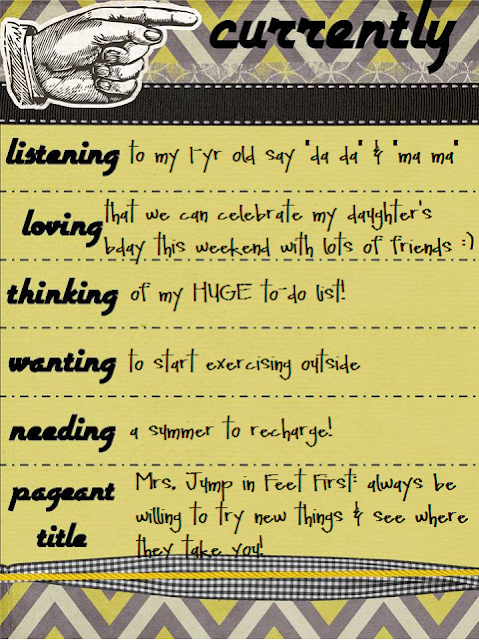 currently
listening to my 1-yr old say "da da" & "ma ma"
loving that we can celebrate my daughter's
bday this weekend with lots of friends :)
thinking of my HUGE to-do list!
wanting to start exercising outside
needing a summer to recharge!
pageant title
Mrs. Jump in Feet First: always be
willing to try new things & see where
they take you!